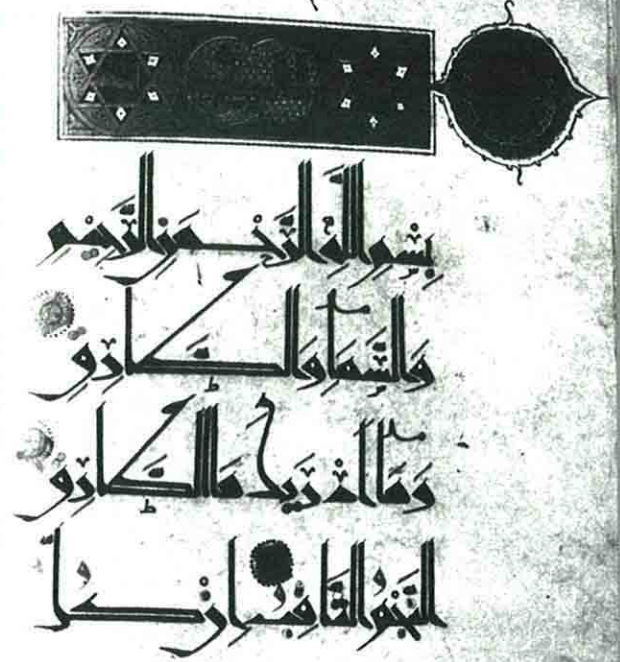 بِسْمِ اللهِ الرَّحْمٰنِ الرَّحِيمِ
وَالسَّمَاءِ وَالطَّارِقِ
وَمَا أَدْرَيكَ مَا الطَّارِقُ
النَّجْمُ الثَّاقِبُ إِنْ كُلُّ